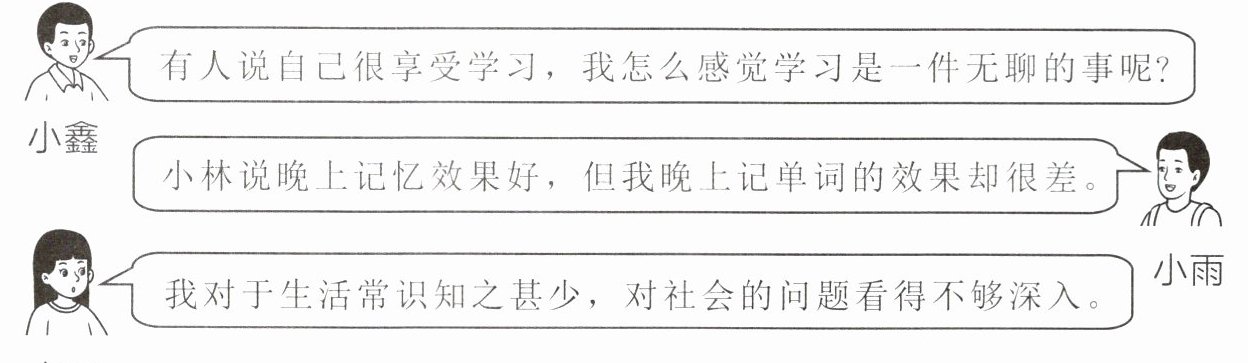 有人说自己很享受学习，我怎么感觉学习是一件无聊的事呢？
小鑫
小林说晚上记忆效果好，但我晚上记单词的效果却很差。
小雨
我对于生活常识知之甚少，对社会的问题看得不够深入。